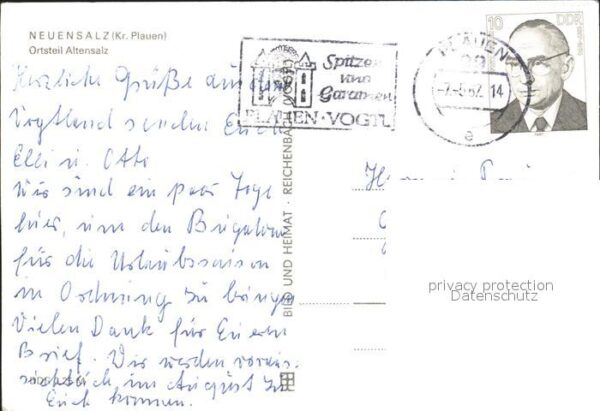 NEUENSALZ (Kr. Plauen)
Ortsteil Altensalz
Herzliche Grüße aus dem
Vogtland senden Euch
Elli u. Otto
Wir sind ein paar Tage
hier, um den Bungalow
für die Urlaubssaison
in Ordnung zu bringen
Vielen Dank für Euren
Brief. Wir werden voraus-
sichtlich im August zu
Euch kommen.
BILD UND HEIMAT · REICHENBACH (VOGTL)
Spitzen
und
Gardinen
PLAUEN · VOGTL
PLAUEN
14
e
10
DDR
privacy protection
Datenschutz